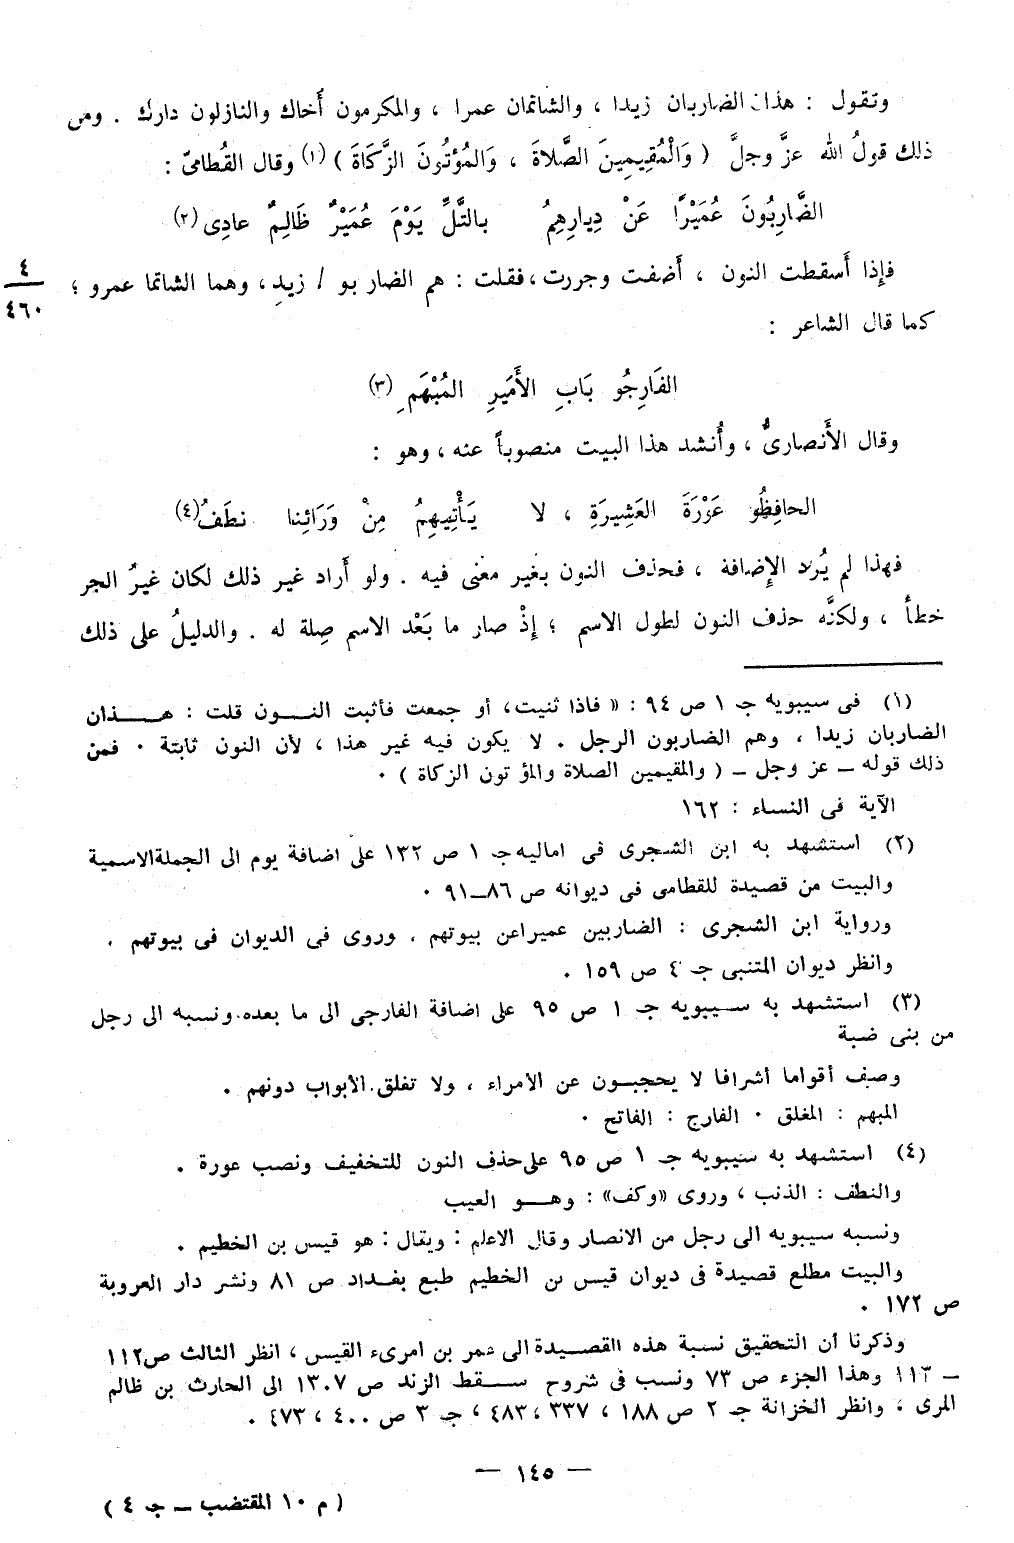 وتقول : هذان الضاربان زيدا ، والشاتمان عمرا ، والمكرمون أَخاك والنازلون دارك . ومن
ذلك قولُ الله عزَّ وجلَّ ( وَالْمُقِيمِينَ الصَّلاةَ ، وَالمُؤتُونَ الزَّكَاةَ ) (١) وقال القُطامىّ :
الضَّارِبُونَ عُمَيْرًا عَنْ دِيارِهِمُ بالتَّلِّ يَوْمَ عُمَيْرٌ ظَالِمٌ عادِى (٢)
فإِذا أَسقطت النون ، أَضفت وجررت ، فقلت : هم الضاربو / زيدٍ ، وهما الشاتما عمرو ؛
٤
٤٦٠
كما قال الشاعر :
الفَارِجُو بَابِ الأَمَيرِ المُبْهَمِ (٣)
وقال الأَنصارىُّ ، وأُنشد هذا البيت منصوباً عنه ، وهو :
الحافِظُو عَوْرَةَ العَشِيرَةِ ، لا يَأْتِيهِمُ مِنْ وَرَائِنا نطَفُ (٤)
فهذا لم يُرد الإِضافة ، فحذف النون بغير معنى فيه . ولو أَراد غير ذلك لكان غيرُ الجر
خطأً ، ولكنَّه حذف النون لطول الاسم ؛ إِذْ صار ما بَعْد الاسم صِلة له . والدليلُ على ذلك
(١) فى سيبويه جـ ١ ص ٩٤ : « فاذا ثنيت ، أو جمعت فأثبت النــون قلت : هــذان
الضاربان زيدا ، وهم الضاربون الرجل . لا يكون فيه غير هذا ، لأن النون ثابتة . فمن
ذلك قوله ــ عز وجل ــ ( والمقيمين الصلاة والمؤتون الزكاة ) .
الآية فى النساء : ١٦٢
(٢) استشهد به ابن الشجرى فى اماليه جـ ١ ص ١٣٢ على اضافة يوم الى الجملة الاسمية
والبيت من قصيدة للقطامى فى ديوانه ص ٨٦ــ٩١ .
ورواية ابن الشجرى : الضاربين عميرا عن بيوتهم . وروى فى الديوان فى بيوتهم .
وانظر ديوان المتنبى جـ ٤ ص ١٥٩ .
(٣) استشهد به سيبويه جـ ١ ص ٩٥ على اضافة الفارجى الى ما بعده ونسبه الى رجل
من بنى ضبة
وصف أقواما أشرافا لا يحجبون عن الأمراء ، ولا تغلق الأبواب دونهم .
المبهم : المغلق . الفارج : الفاتح .
(٤) استشهد به سيبويه جـ ١ ص ٩٥ على حذف النون للتخفيف ونصب عورة .
والنطف : الذنب ، وروى «وكف» : وهــو العيب
ونسبه سيبويه الى رجل من الانصار وقال الاعلم : ويقال : هو قيس بن الخطيم .
والبيت مطلع قصيدة فى ديوان قيس بن الخطيم طبع بغداد ص ٨١ ونشر دار العروبة
ص ١٧٢ .
وذكرنا أن التحقيق نسبة هذه القصــيدة الى عمر بن امرىء القيس ، انظر الثالث ص١١٢
ــ ١١٣ وهذا الجزء ص ٧٣ ونسب فى شروح ســقط الزند ص ١٣٠٧ الى الحارث بن ظالم
المرى ، وانظر الخزانة جـ ٢ ص ١٨٨ ، ٣٣٧ ، ٤٨٣ ، جـ ٣ ص ٤٠٠ ، ٤٧٣ .
— ١٤٥ —
( م ١٠ المقتضب ــ جـ ٤ )